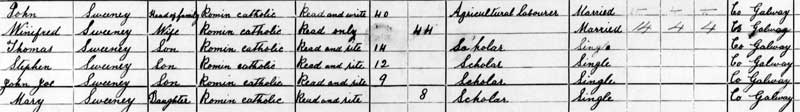 John Sweeney Head of family Romin catholic Read and write 40 Agricultural Labourer Married — — — Co Galway
Winifred Sweeney Wife Romin catholic Read only 44 Married 4 4 4 Co Galway
Thomas Sweeney Son Romin catholic Read and rite 14 Scholar Single Co Galway
Stephen Sweeney Son Romin catholic Read and rite 12 Scholar Single Co Galway
John Joe Sweeney Son Romin catholic Read and rite 9 Scholar Single Co Galway
Mary Sweeney Daughter Romin catholic Read and rite 8 Scholar Single Co Galway